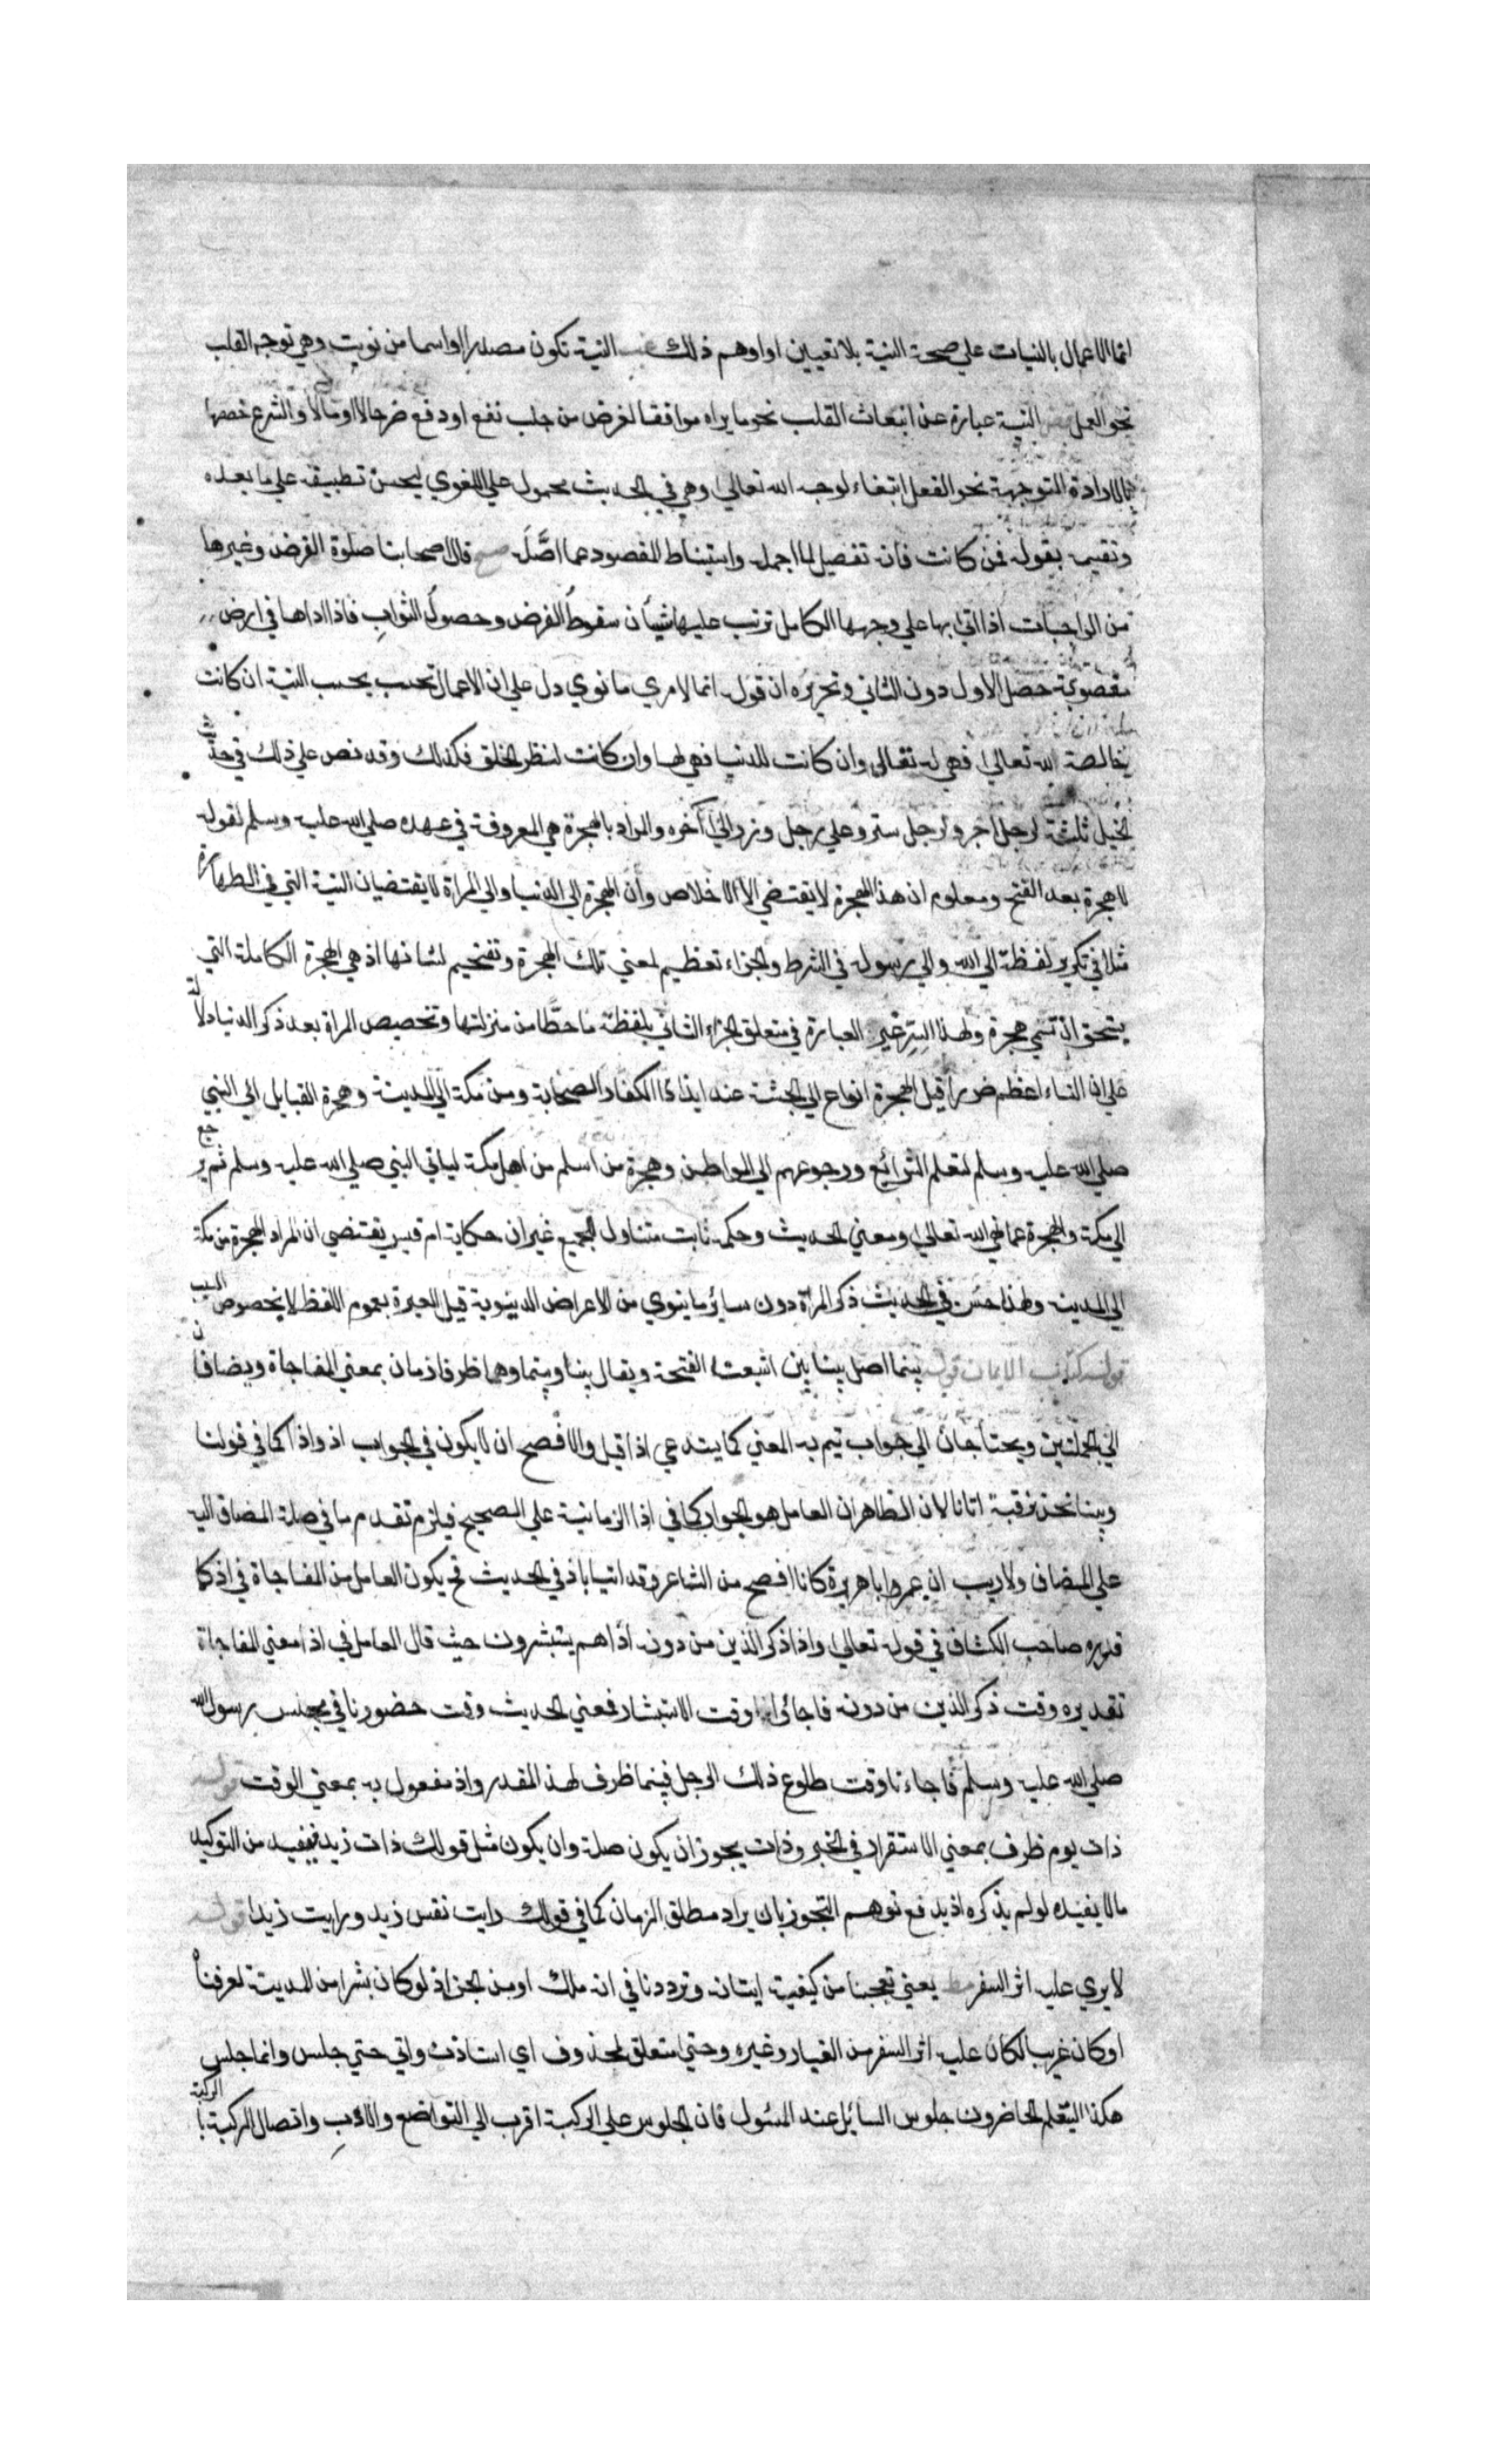 انما الاعمال بالنيات علي صحة النية بلا تعيين او اوهم ذلك النية تكون مصدرا واسما من نويت وهي توجه القلب
نحو العمل النية عبارة عن انبعاث القلب نحو ما يراه موافقا لغرض من جلب نفع او دفع ضر حالا او مالا والشرع خصها
بالارادة المتوجهة نحو الفعل ابتغاء لوجه الله تعالي وهي في الحديث محمول علي اللغوي ليحسن تطبيقه علي ما بعده
وتقسيمه بقوله فمن كانت فانه تفصيل لما اجمله واستنباط للمقصود عما اصَّلَه قال اصحابنا صلوة الفرض وغيرها
من الواجبات اذا اتي بها علي وجهها الكامل ترتب عليها شيأن سقوطُ الفرض وحصولُ الثواب فاذا اداها في ارض
مغصوبة حصل الاول دون الثاني وتحريره ان قوله انما لامري ما نوي دل علي ان الاعمال تحسب بحسب النية ان كانت
خالصة لله تعالي فهي له تعالي وان كانت للدنيا فهي لها وان كانت لنظر الخلق فكذلك وقد نص علي ذلك في حديث
الخيل ثلثة لرجل اجر ولرجل ستر وعلي رجل وزر الي آخره والمراد بالهجرة هي المعروفة في عهده صلي الله عليه وسلم لقوله
لا هجرة بعد الفتح ومعلوم ان هذا الهجرة لا يقتضي الا الاخلاص وان الهجرة الي الدنيا والي المراة لا يقتضيان النية التي في الطهارة
مثلا في تكرير لفظة الي الله والي رسوله في الشرط والجزاء تعظيم لمعني تلك الهجرة وتفخيم لشانها اذ هي الهجرة الكاملة التي
يستحق ان تسمي هجرة ولهذا السر غير العبارة في متعلق الجزاء الثاني بلفظة ما حطًّا من منزلتها وتخصيص المراة بعد ذكر الدنيا دلالة
علي ان النساء اعظم ضررا قيل الهجرة انواع الي الحبشة عند ايذاء الكفار الصحابة ومن مكة الي المدينة وهجرة القبايل الي النبي
صلي الله عليه وسلم لتعلم الشرائع ورجوعهم الي المواطن وهجرة من اسلم من اهل مكة لياتي النبي صلي الله عليه وسلم ثم يرجع
الي مكة والهجرة عما نهي الله تعالي ومعني الحديث وحكمه ثابت متناول لجميع غير ان حكاية ام قيس يقتضي ان المراد الهجرة من مكة
الي المدينة ولهذا حسن في الحديث ذكر المراة دون سائر ما ينوي من الاعراض الدنيوية قيل العبرة بعموم اللفظ لا بخصوص السبب
قوله كتاب الايمان قوله بينما اصل بينا بين اشبعت الفتحة ويقال بينا وبينما وهما ظرفا زمان بمعني المفاجاة ويضافان
الي الجملتين ويحتاجان الي جواب تيم به المعني كما يستدعي اذا قيل والافصح ان لا يكون في الجواب اذ واذا كما في قولنا
وبينا نحن نرقبة اتانا لان الظاهر ان العامل هو الجواب كما في اذا الزمانية علي الصحيح فيلزم تقدم ما في صلة المضاف اليه
علي المضاف ولا ريب ان عمر وابا هريرة كانا افصح من الشاعر وقد اتيا باذ في الحديث فح يكون العامل من المفاجاة في اذ كما
قدره صاحب الكشاف في قوله تعالي واذا ذكر الذين من دونه اذا هم يستبشرون حيث قال العامل في اذا معني المفاجاة
تقديره وقت ذكر الذين من دونه فاجائوا وقت الاستبشار فمعني الحديث وقت حضورنا في مجلس رسول الله
صلي الله عليه وسلم فاجاءنا وقت طلوع ذلك الرجل فبينما ظرف لهذا المقدر واذ مفعول به بمعني الوقت قوله
ذات يوم ظرف بمعني الاستقرار في الخبر وذات يجوز ان يكون صلة وان يكون مثل قولك ذات زيد فيفيد من التوكيد
ما لا يفيده لو لم يذكره اذ يدفع توهم التجوز بان يراد مطلق الزمان كما في قولك رايت نفس زيد ورايت زيدا قوله
لا يري عليه اثر السفر يعني تعجبنا من كيفية ايتانه وترددنا في انه ملك او من الجن اذ لو كان بشرا من المدينة لعرفناه
او كان غريبا لكان عليه اثر السفر من الغبار وغيره وحتي متعلق لمحذوف اي استاذن واتي حتي جلس وانما جلس
هكذا ليتعلم الحاضرون جلوس السائل عند المسئول فان الجلوس علي الركبة اقرب الي التواضع والادب واتصال الركبة بالركبة